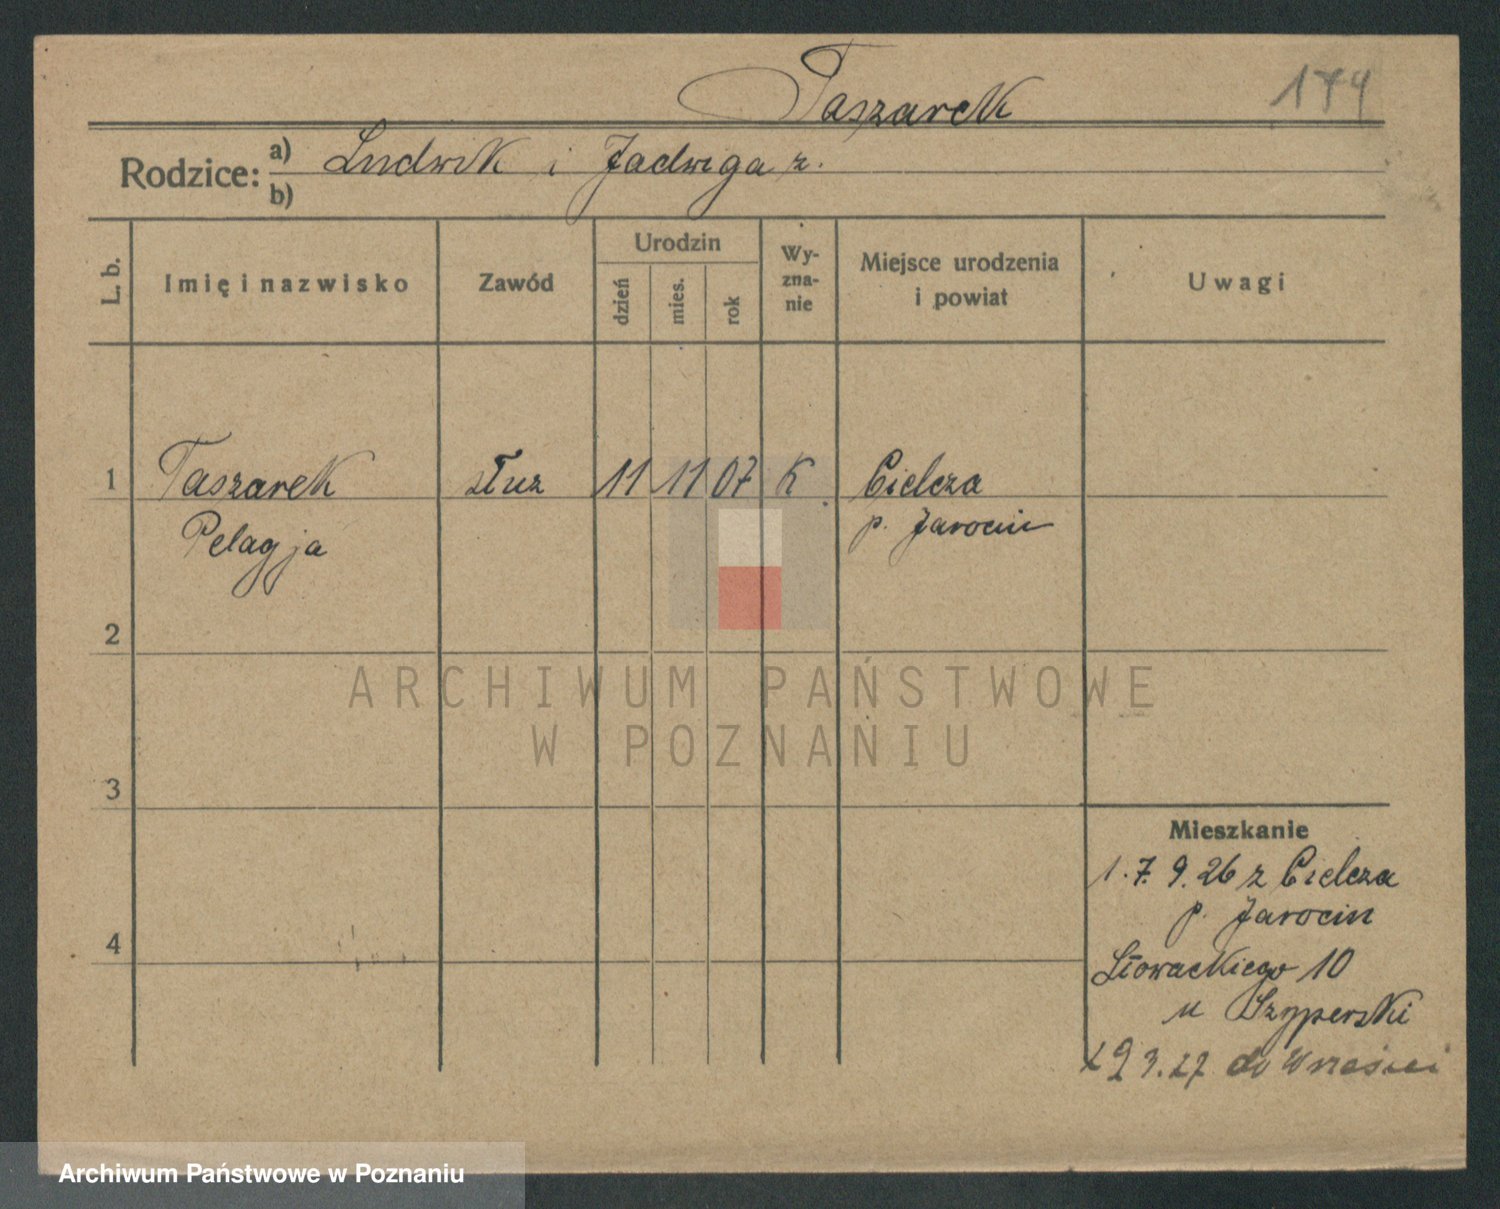 Taszarek
174
Rodzice: a) Ludwik i Jadwiga z.
b)
L. b.
Imię i nazwisko
Zawód
Urodzin
dzień
mies.
rok
Wy-
zna-
nie
Miejsce urodzenia
i powiat
Uwagi
1 Taszarek służ 11 11 07 K Cielcza
Pelagja p. Jarocin
2
3
4
Mieszkanie
1. 7. 9. 26 z Cielcza
p. Jarocin
Słowackiego 10
u Szyperski
3. 27 do Wrześni
ARCHIWUM PAŃSTWOWE
W POZNANIU
Archiwum Państwowe w Poznaniu